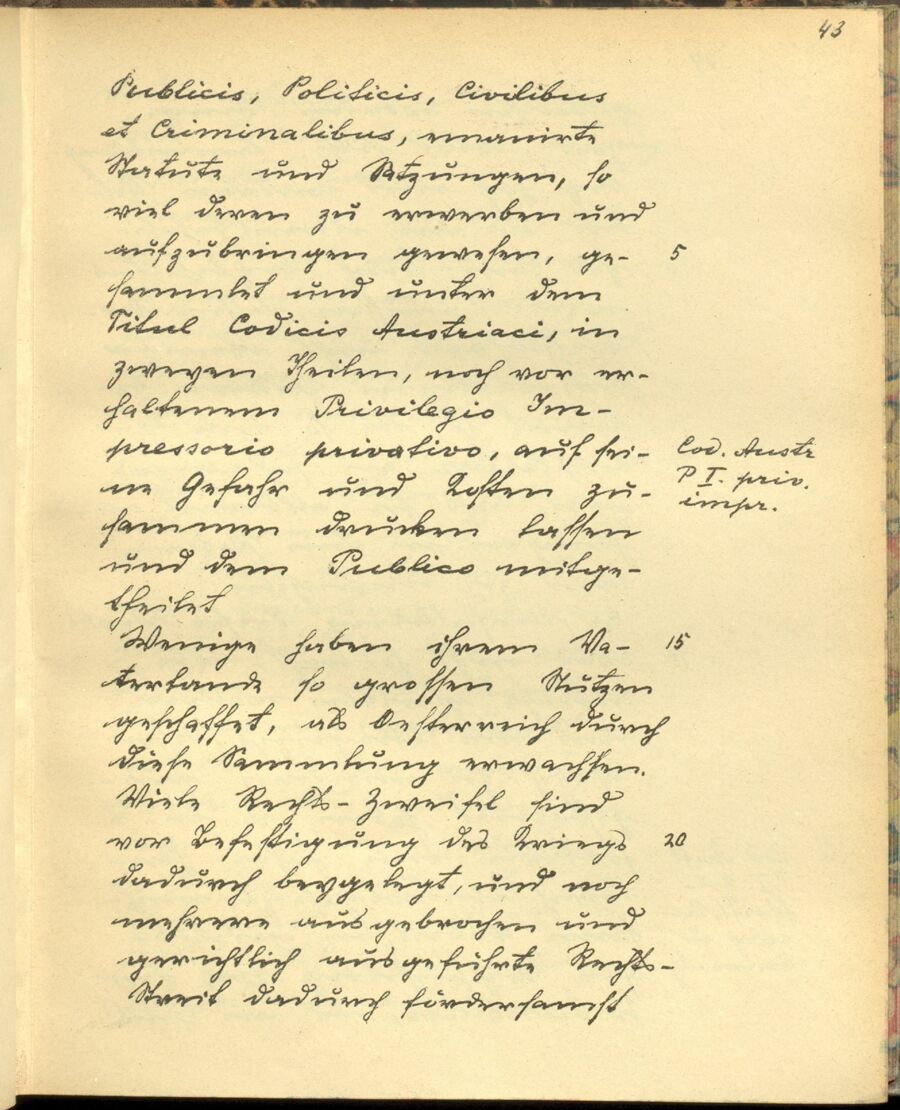 43
Publicis, Politicis, Civilibus
et Criminalibus, emanirte
Statute und Satzungen, so
viel deren zu erwerben und
aufzubringen gewesen, ge- 5
sammlet und unter dem
Titul Codicis Austriaci, in
zweyen Theilen, noch vor er-
haltenem Privilegio Im-
pressorio privativo, auf sei- Cod. Austr
ne Gefahr und Kosten zu- P I. priv.
sammen drucken lassen impr.
und dem Publico mitge-
theilet
Wenige haben ihrem Va- 15
terlande so grossen Nutzen
geschaffet, als Oesterreich durch
diese Sammlung erwachsen.
Viele Rechts-Zweifel sind
vor Befestigung des Kriegs 20
dadurch beygelegt, und noch
mehrere ausgebrochen und
gerichtlich ausgeführte Rechts-
Streit dadurch fördersamst